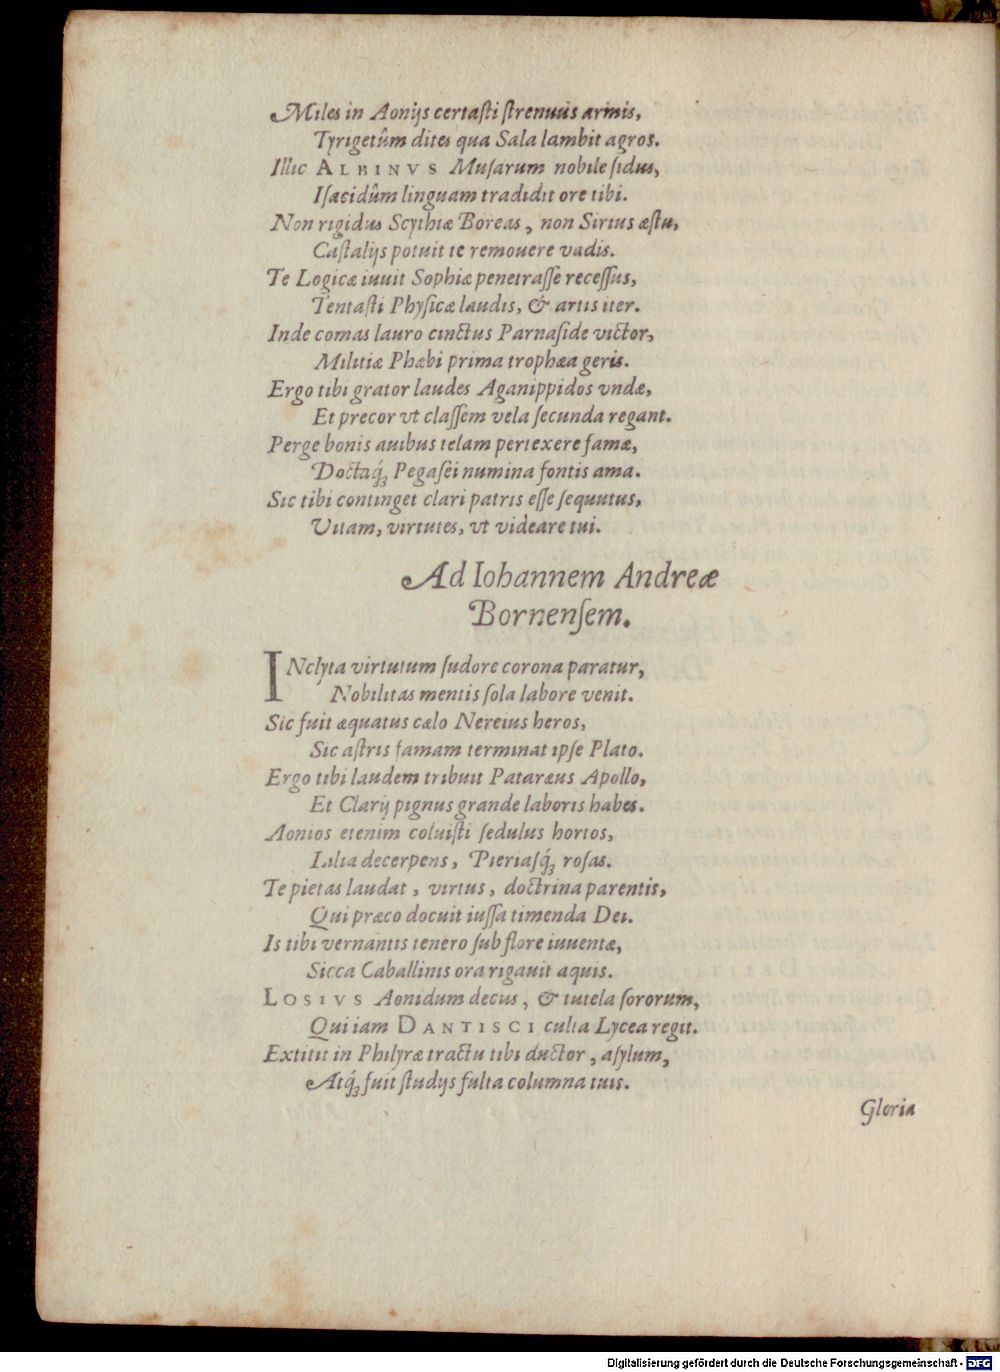 Miles in Aonijs certaſti ſtrenuus armis,
Tyrigetûm dites qua Sala lambit agros.
Illic ALBINVS Muſarum nobile ſidus,
Iſacidûm linguam tradidit ore tibi.
Non rigidus Scythiæ Boreas, non Sirius æſtu,
Caſtalijs potuit te remouere vadis.
Te Logicæ iuuit Sophiæ penetraſſe receſſus,
Tentaſti Phyſicæ laudis, & artis iter.
Inde comas lauro cinctus Parnaſide victor,
Militiæ Phœbi prima trophæa geris.
Ergo tibi grator laudes Aganippidos vndæ,
Et precor vt claſſem vela ſecunda regant.
Perge bonis auibus telam pertexere famæ,
Doctaq́; Pegaſei numina fontis ama.
Sic tibi continget clari patris eſſe ſequutus,
Vitam, virtutes, vt videare tui.
Ad Iohannem Andreæ
Bornenſem.
INclyta virtutum ſudore corona paratur,
Nobilitas mentis ſola labore venit.
Sic fuit æquatus cælo Nereius heros,
Sic aſtris famam terminat ipſe Plato.
Ergo tibi laudem tribuit Pataræus Apollo,
Et Clarij pignus grande laboris habes.
Aonios etenim coluiſti ſedulus hortos,
Lilia decerpens, Pieriaſq́; roſas.
Te pietas laudat, virtus, doctrina parentis,
Qui præco docuit iuſſa timenda Dei.
Is tibi vernantis tenero ſub flore iuuentæ,
Sicca Caballinis ora rigauit aquis.
LOSIVS Aonidum decus, & tutela ſororum,
Qui iam DANTISCI culta Lycea regit.
Extitit in Philyræ tractu tibi ductor, aſylum,
Atq́; fuit ſtudijs fulta columna tuis.
Gloria
Digitalisierung gefördert durch die Deutsche Forschungsgemeinschaft - DFG